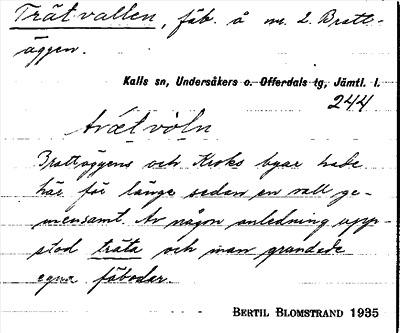 Trätvallen, fäb. å nr. 2. Bratt-
äggen.
Kalls sn, Undersåkers o. Offerdals tg, Jämtl. l.
244
trætvòln
Brattäggens och Kroks byar hade
här för länge sedan en vall ge-
mensamt. Av någon anledning upp-
stod träta och man grundade
egna fäbodar.
BERTIL BLOMSTRAND 1935